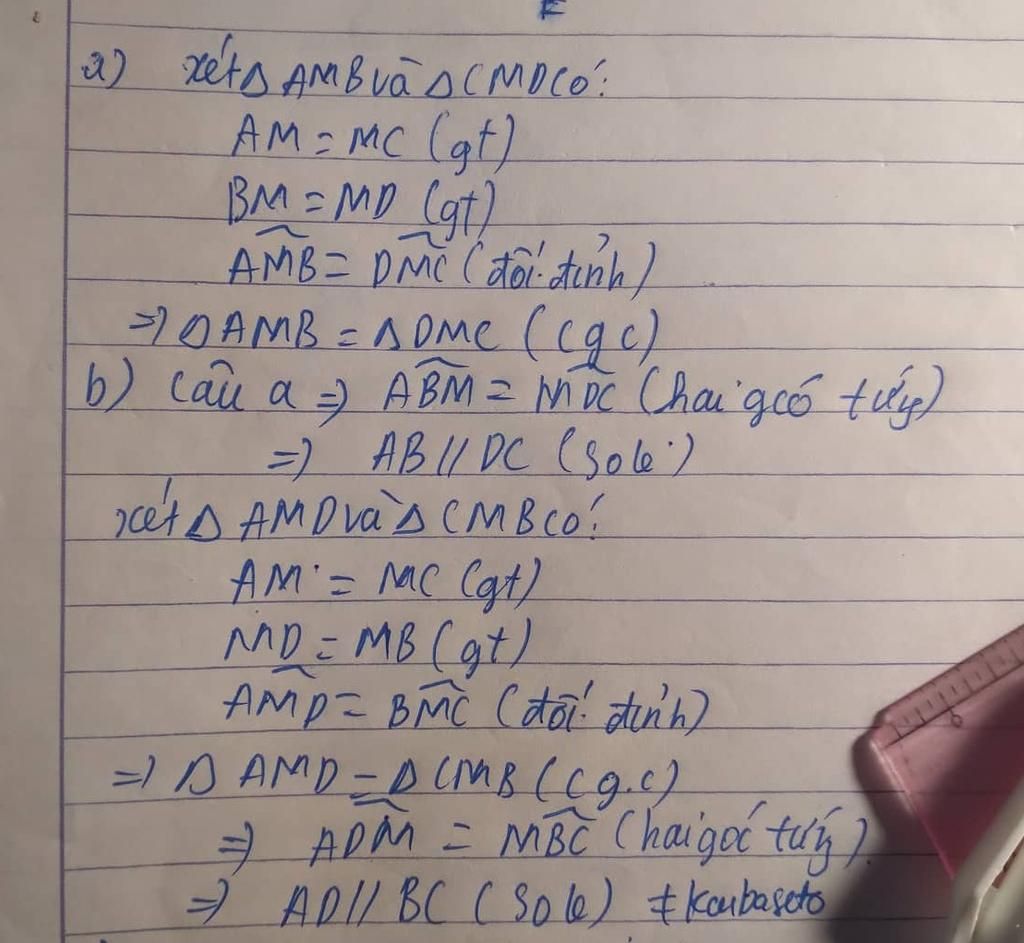 E
a) xét Δ AMB và Δ CMD có:
AM = MC (gt)
BM = MD (gt)
AMB̂ = DMĈ (đối đỉnh)
=> Δ AMB = Δ DMC (c g c)
b) Câu a => ABM̂ = MDĈ (hai góc tứ)
=> AB // DC (So le)
xét Δ AMD và Δ CMB có:
AM = MC (gt)
MD = MB (gt)
AMD̂ = BMĈ (đối đỉnh)
=> Δ AMD = Δ CMB (c g.c)
=> ADM̂ = MBĈ (hai góc tứ)
=> AD // BC (So le)